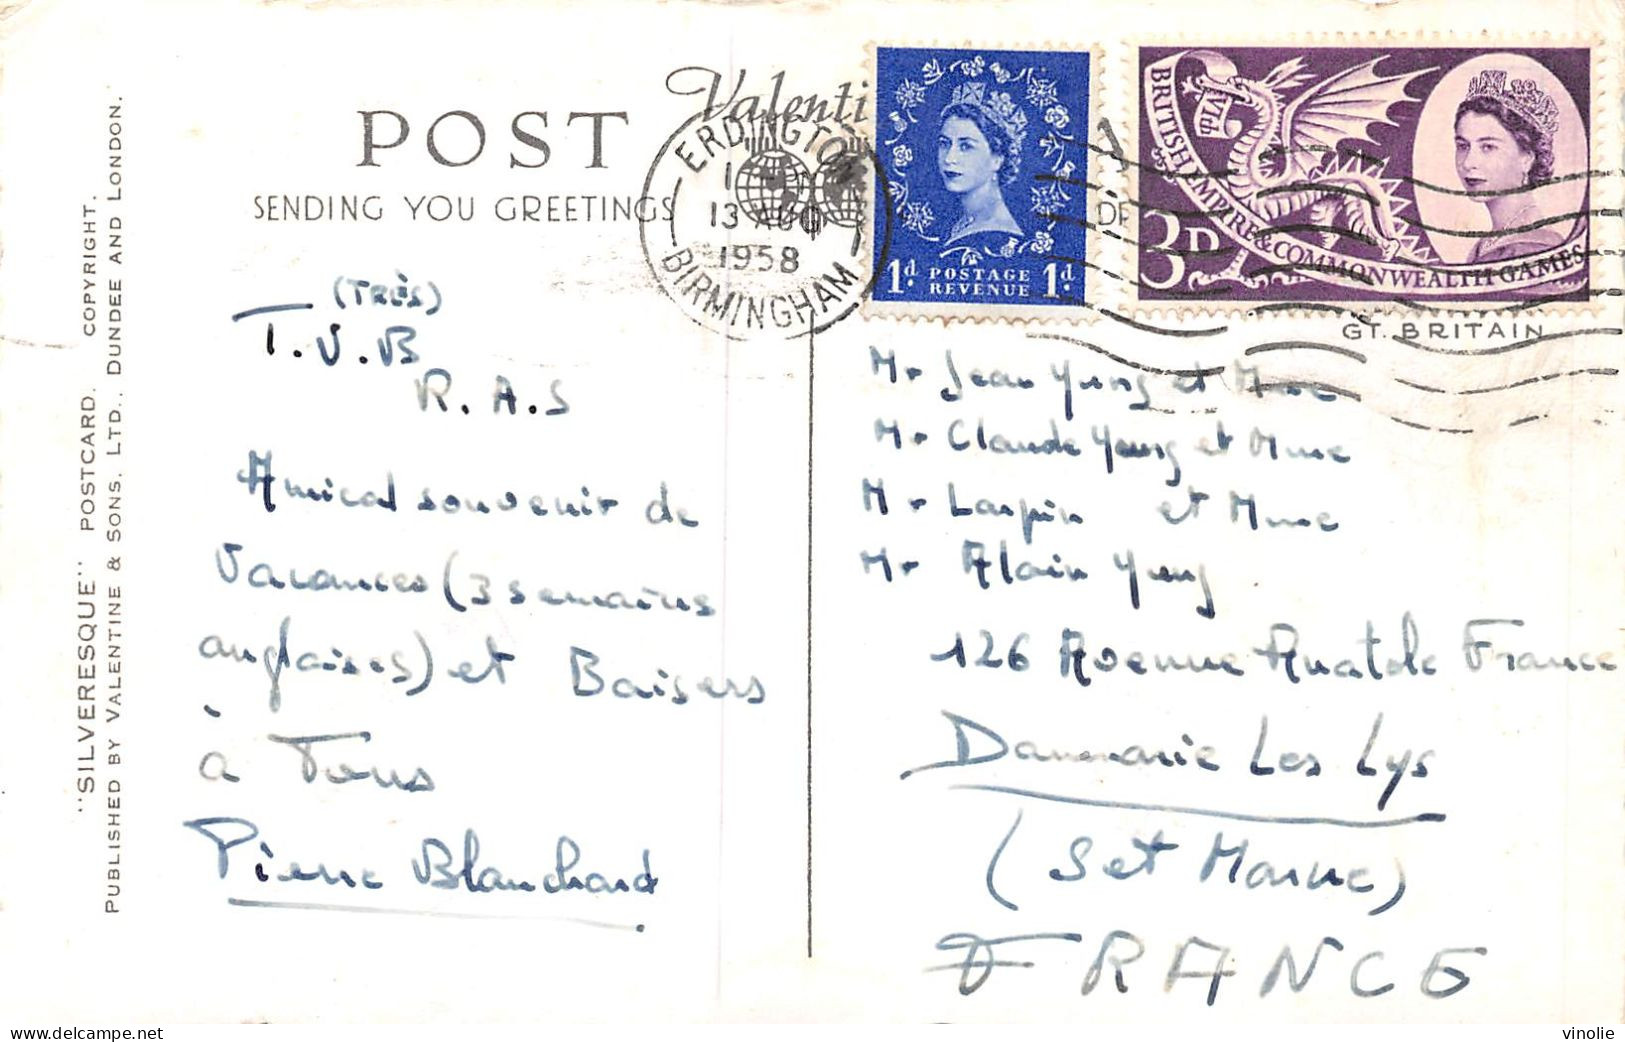 "SILVERESQUE" POSTCARD. COPYRIGHT.
PUBLISHED BY VALENTINE & SONS, LTD., DUNDEE AND LONDON.
Valenti
POST
SENDING YOU GREETINGS
ERDINGTON
13 AUG
1958
BIRMINGHAM
1d. POSTAGE REVENUE 1d.
BRITISH EMPIRE & COMMONWEALTH GAMES
VIth
3D
GT. BRITAIN
(TRÈS)
T.V.B
R.A.S
Amical souvenir de
Vacances (3 semaines
anglaises) et Baisers
à Tous
Pierre Blanchard
Mr Jean Yung et Mme
Mr Claude Yung et Mme
Mr Laupin et Mme
Mr Alain Yung
126 Avenue Anatole France
Dammarie Les Lys
(S et Marne)
FRANCE
vinolie